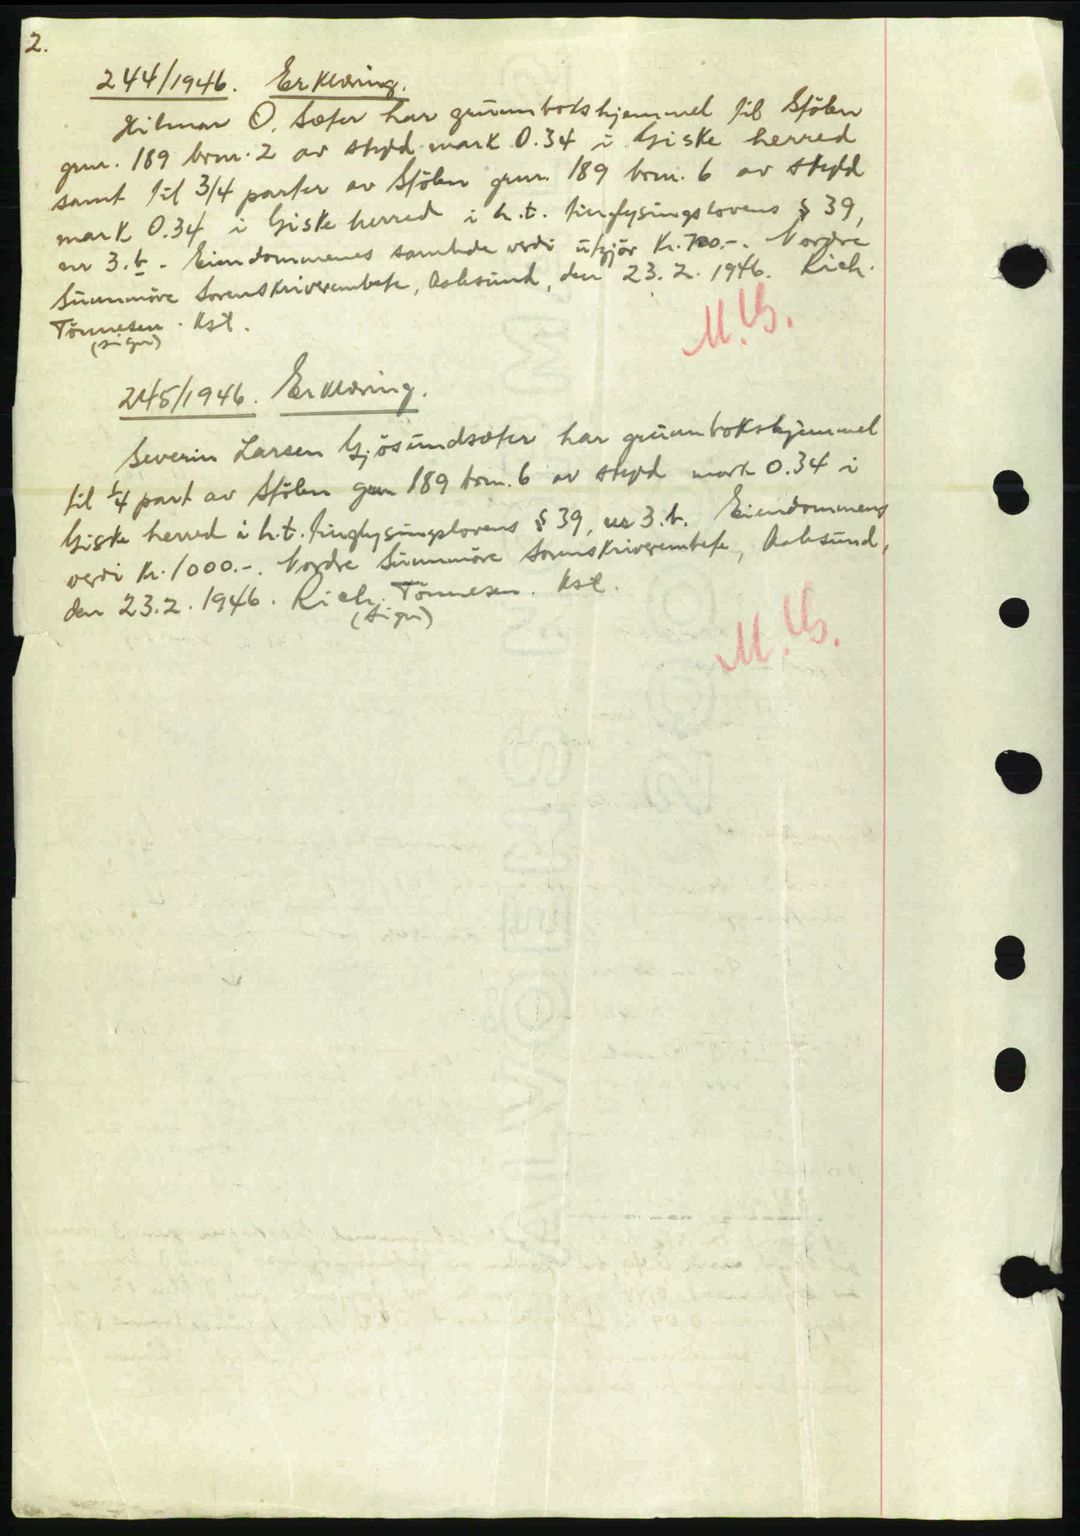 2.
244/1946. Erklæring.
Hilmar O. Sæter har grunnbokshjemmel til Stölen
gnr. 189 bnr. 2 av skyld mark 0.34 i Giske herred
samt til 3/4 parter av Stölen gnr. 189 bnr. 6 av skyld
mark 0.34 i Giske herred i h.t. tinglysingslovens § 39,
nr 3.b. Eiendommenes samlede verdi utgjör Kr. 700.-. Nordre
Sunnmöre Sorenskriverembete, Aalesund, den 23.2.1946. Rich.
Tönnesen. Kst.
(sign)
M.B.
245/1946. Erklæring.
Severin Larsen Gjösundsæter har grunnbokshjemmel
til 1/4 part av Stölen gnr 189 bnr. 6 av skyld mark 0.34 i
Giske herred i h.t. tinglysingslovens § 39, nr 3.b. Eiendommens
verdi Kr. 1000.-. Nordre Sunnmöre Sorenskriverembete, Aalesund,
den 23.2.1946. Rich. Tönnesen. Kst.
(sign)
M.B.